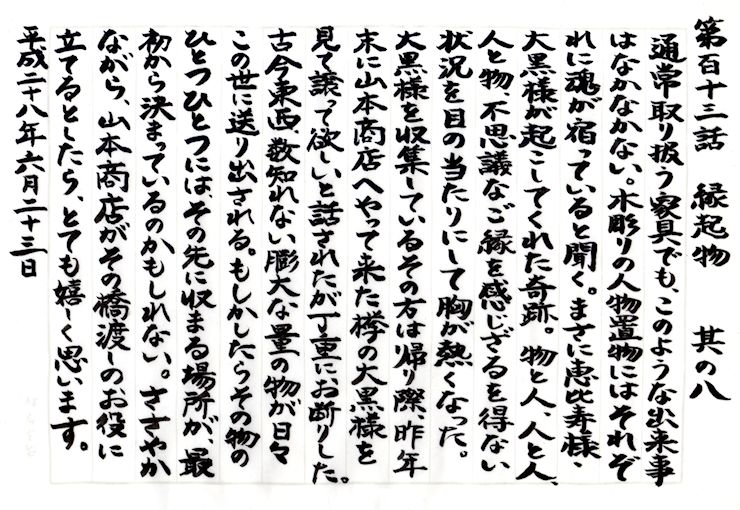 第百十三話　縁起物　其の八
通常取り扱う家具でも、このような出来事
はなかなかない。木彫りの人物置物にはそれぞ
れに魂が宿っていると聞く。まさに恵比寿様・
大黒様が起こしてくれた奇跡。物と人、人と人、
人と物、不思議なご縁を感じざるを得ない
状況を目の当たりにして胸が熱くなった。
大黒様を収集しているその方は帰り際、昨年
末に山本商店へやって来た欅の大黒様を
見て譲って欲しいと話されたが丁重にお断りした。
古今東西、数知れない膨大な量の物が日々
この世に送り出される。もしかしたらその物の
ひとつひとつには、その先に収まる場所が、最
初から決まっているのかもしれない。ささやか
ながら、山本商店がその橋渡しのお役に
立てるとしたら、とても嬉しく思います。
平成二十八年六月二十三日